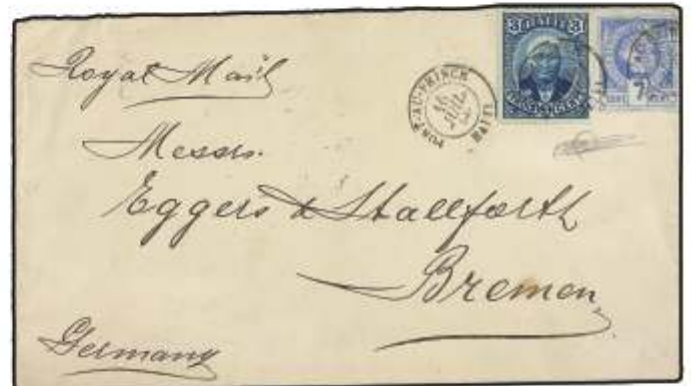 3 HAITI 3
7
Royal Mail
PORT-AU-PRINCE
16
JUIL
HAITI
Messrs.
Eggers & Stallforth
Bremen
Germany